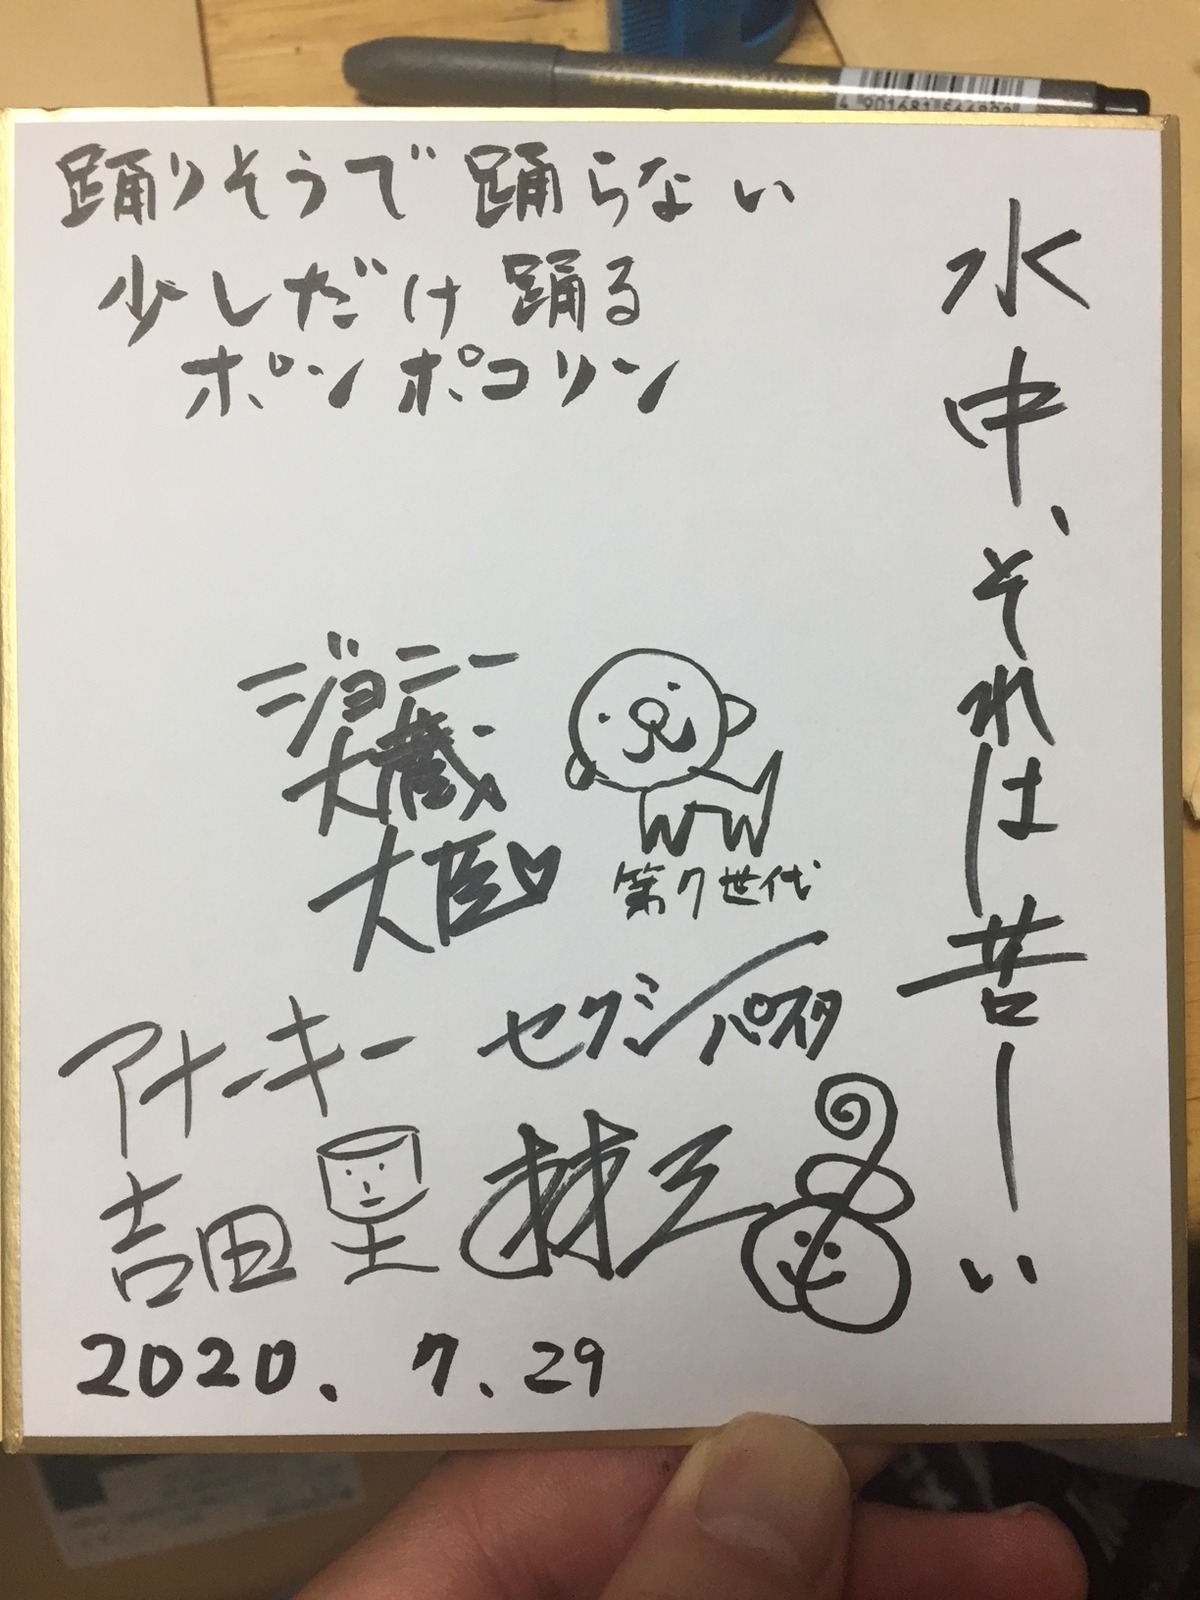 踊りそうで踊らない
少しだけ踊る
ポンポコリン
水中、それは苦ーい
ジョニー
大蔵
大臣♥
第7世代
アナーキー
吉田
セクシーパイスタ
林三
2020. 7. 29
4 901681 566808